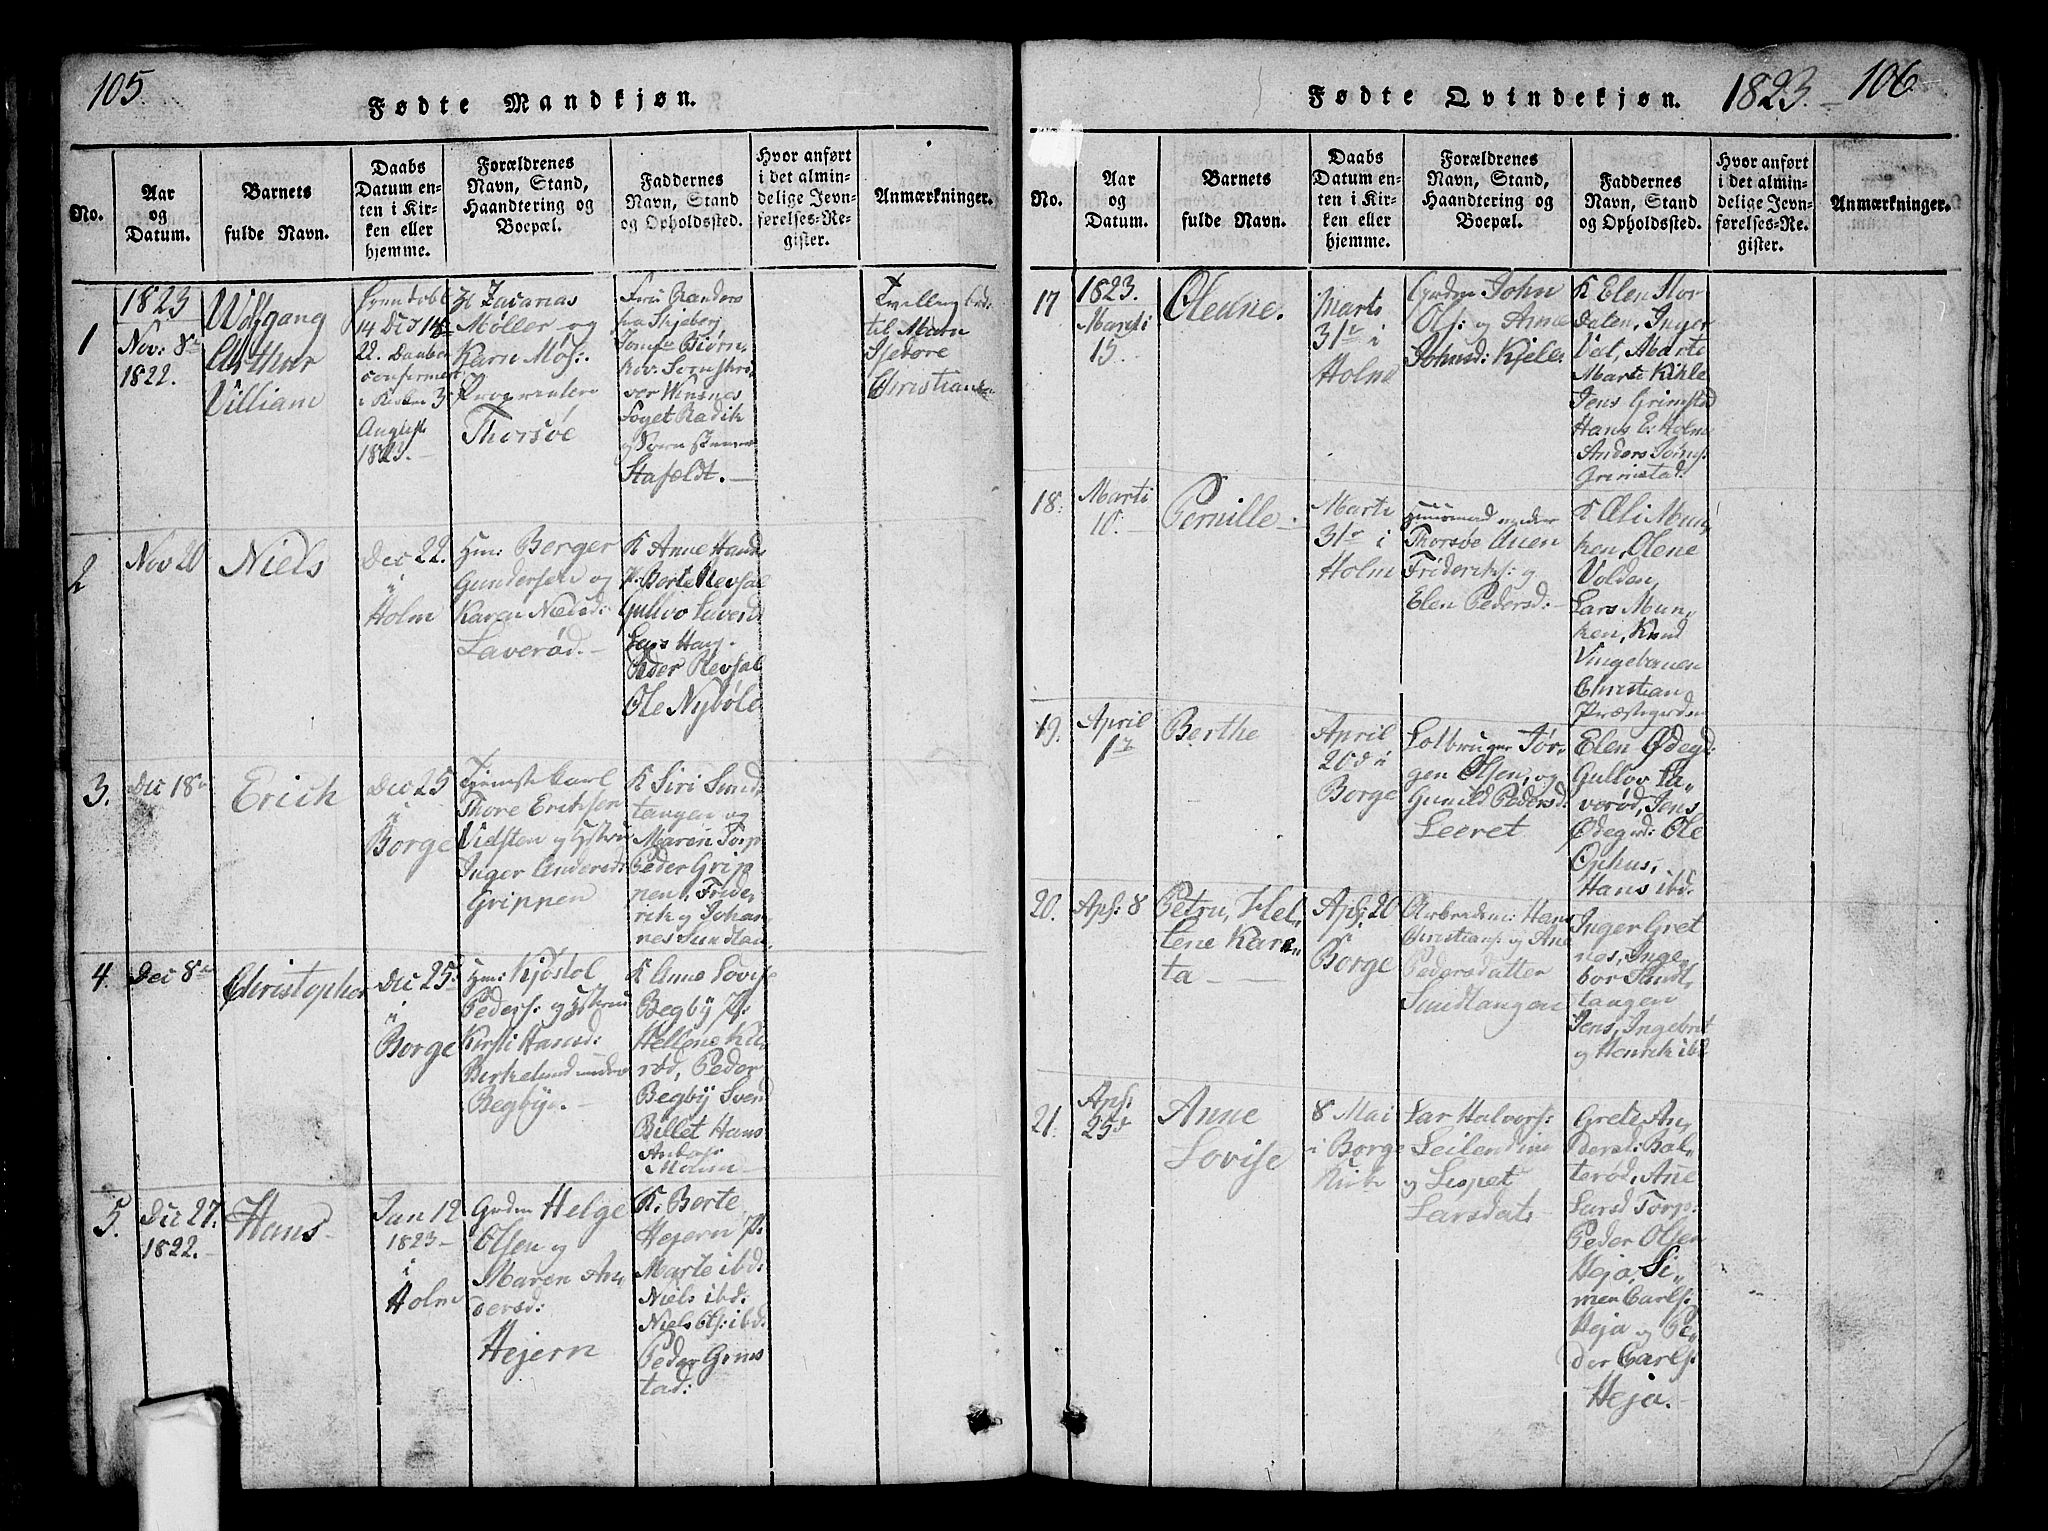 105
Fødte Mandkjøn.
No.
Aar
og
Datum.
Barnets
fulde Navn.
Daabs
Datum en-
ten i Kir-
ken eller
hjemme.
Forældrenes
Navn, Stand,
Haandtering og
Boepæl.
Faddernes
Navn, Stand
og Opholdssted.
Hvor anført
i det almin-
delige Jevn-
førelses-Re-
gister.
Anmærkninger.
1
1823
Nov: 8de
1822.
Wolfgang
Arthur
Villiam
14 Dec 18
22. Daaben
confirmert
i Kirken 3
August
1823.
Hr Zacarias
Møller og
Karn Møl:
Thorsøe
Fru Randers
fra Skjeberg
Jomfr Biørn,
hov: Sornskri
ver Wensnes
Foget Radik
Stafeldt.
Tvelling
til Maren
Isedore
Christiane
2
Nov 20
Niels
Dec 22.
i
Holm
Hm: Berger
Gundersen og
Karen Nielsd:
Laverød.
K Anne Haug
P. Berte Revsal
Gullvo Laverd
Lars Haug
Peder Revsal
Ole Nybøle
3.
Dec 18de
Erich
Dec 25
i
Borge
Tjenstekarl
Thore Eriksen
Vidsten og Hstru
Inger Andersd:
Grippen
K Siri Sund
tangen og
Maren Torp
Peder Grip
nen, Fride,
rik og Johan
nes Sundtan,
4.
Dec 8de
Christopher
Dec 25.
i
Borge
Hm: Kjøstol
Peders: og Hstru
Kirsti Hansd:
Birkelund under
Begbye.
K Anne Lovise
Begby P:
Hellene Kil
rød, Peder
Begby Svend
Billet Hans
Anbøe
Holm
5.
Dec 27.
1822.
Hans
Jan 12
1823
i
Holm
Grdm Helge
Olsen og
Maren An,
dersd:
Hejern
K. Berte
Hejern P:
Marte ibd:
Niels ibd:
Niels Ols: ibd:
Peder Grim
stad:
Fødte Qvindekjøn. 1823. 106
No.
Aar
og
Datum.
Barnets
fulde Navn.
Daabs
Datum en-
ten i Kir-
ken eller
hjemme.
Forældrenes
Navn, Stand,
Haandtering og
Boepæl.
Faddernes
Navn, Stand
og Opholdssted.
Hvor anført
i det almin-
delige Jevn-
førelses-Re-
gister.
Anmærkninger.
17
1823.
Marti
15.
Oledne.
Marti
31te i
Holm
Grdm John
Ols: og Anne
Johnsd: Kjele
K Elen Stor
Dalen, Inger
Vet, Marte
Marte Kihle
Jens Grimstad
Hans E: Holm
Anders Torp
Grimstad:
18.
Marti
10.
Pernille.
Marti
31te i
Holm
Huusmand under
Thorsøe Aven
Frideriks: og
Elen Pedersd:
K Oli Mun
ken, Olene
Volden,
Lars Mun,
ken, Knud
Vingebanen
Christian
Præstegrden
19.
April
1te
Berthe
April
20de i
Borge
Lotbruger Jør,
gen Olsen, og
Gunild Pedersd:
Leeret
Elen Ødegd:
Gullov La,
verød, Jens
Ødegrd: Ole
Ophus,
Hans ibd:
20.
Apr: 8
Petru, Hel,
lene Karen
ta
Apr: 20
i
Borge
Arbeidsm: Hans
Christians: og Ane
Pedersdatter
Sundtangen
Inger Gret
nes, Inge,
bor Sundt,
tangen
Jens, Ingebrit
og Henrik ibd
21.
Apr:
25de
Anne
Lovise
8 Mai
i Borge
Kirke
Lar Halvors:
Leilending
og Lispet
Larsdat:
Grete An,
dersd: Bal,
terød, Ane
Larsd Torp:
Peder Olsen
Heja, Si,
men Carls:
Heja og Pe,
der Carls:
Heja.